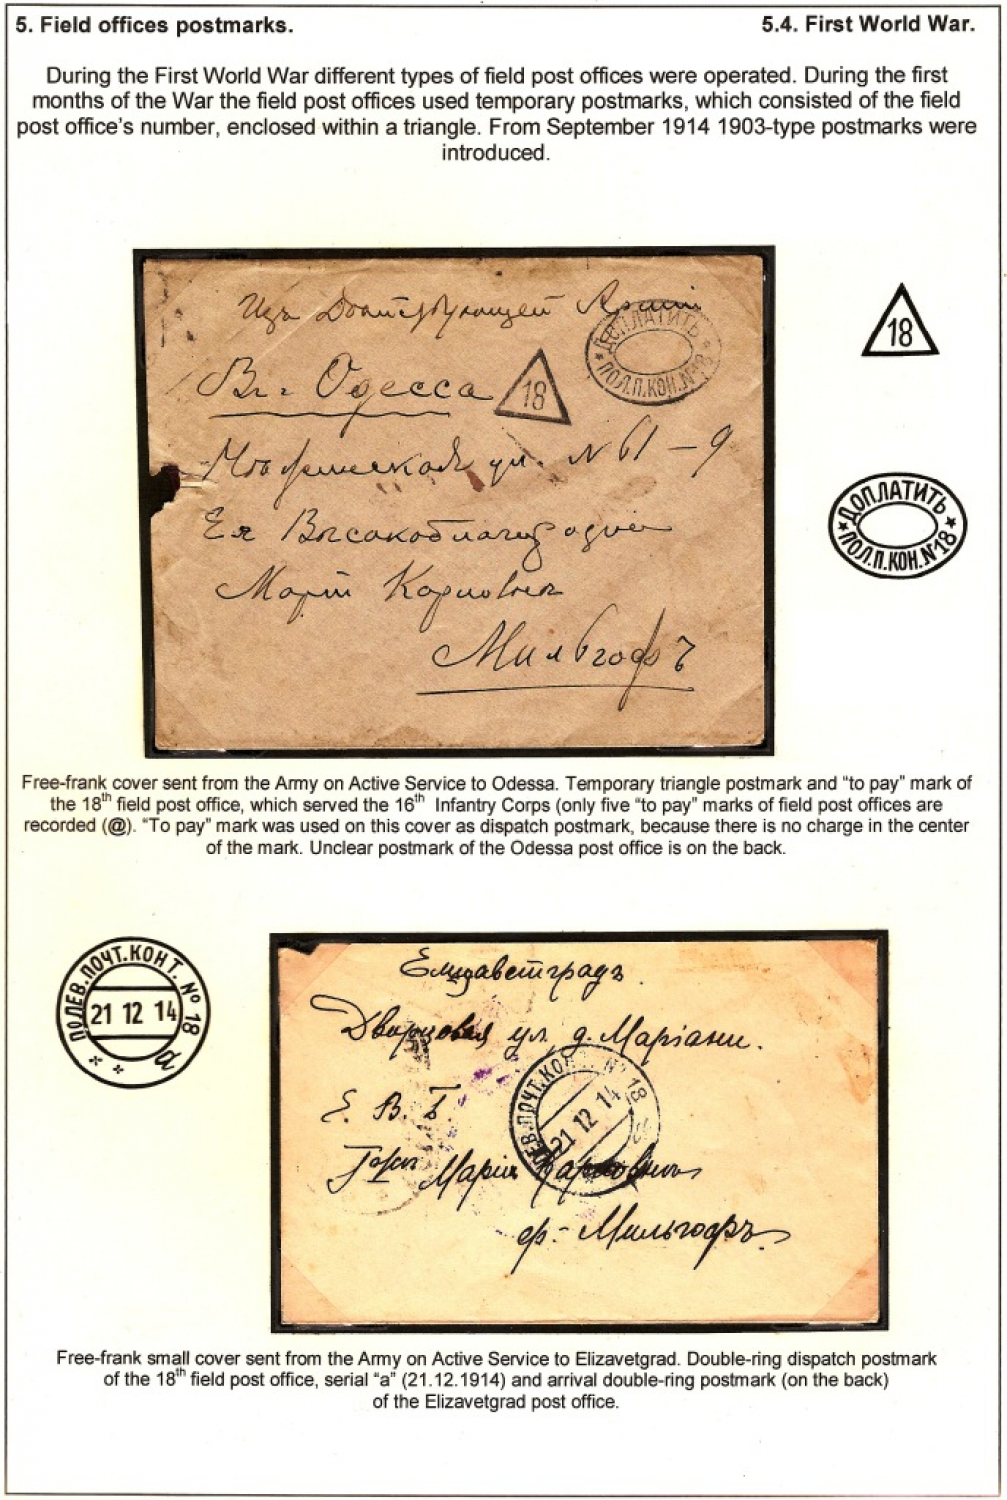 5. Field offices postmarks. 5.4. First World War.
During the First World War different types of field post offices were operated. During the first
months of the War the field post offices used temporary postmarks, which consisted of the field
post office's number, enclosed within a triangle. From September 1914 1903-type postmarks were
introduced.
Изъ Действующей Армiи
ДОПЛАТИТЬ
ПОЛ.П.КОН.№18
18
Вг. Одесса
18
ул. N 61 – 9
ДОПЛАТИТЬ
ПОЛ.П.КОН.№18
Ея Высокоблагородiе
Марiи Карловне
Мильгофъ
Free-frank cover sent from the Army on Active Service to Odessa. Temporary triangle postmark and "to pay" mark of
the 18th field post office, which served the 16th Infantry Corps (only five "to pay" marks of field post offices are
recorded (@). "To pay" mark was used on this cover as dispatch postmark, because there is no charge in the center
of the mark. Unclear postmark of the Odessa post office is on the back.
ПОЛЕВ.ПОЧТ.КОНТ. № 18
21 12 14
а
Елисаветградъ.
Дворцовая ул. д. Марiани.
Е. В. Б.
ПОЛЕВ.ПОЧТ.КОНТ. № 18
21 12 14
Марiи Карловне
ф.- Мильгофъ.
Free-frank small cover sent from the Army on Active Service to Elizavetgrad. Double-ring dispatch postmark
of the 18th field post office, serial "a" (21.12.1914) and arrival double-ring postmark (on the back)
of the Elizavetgrad post office.